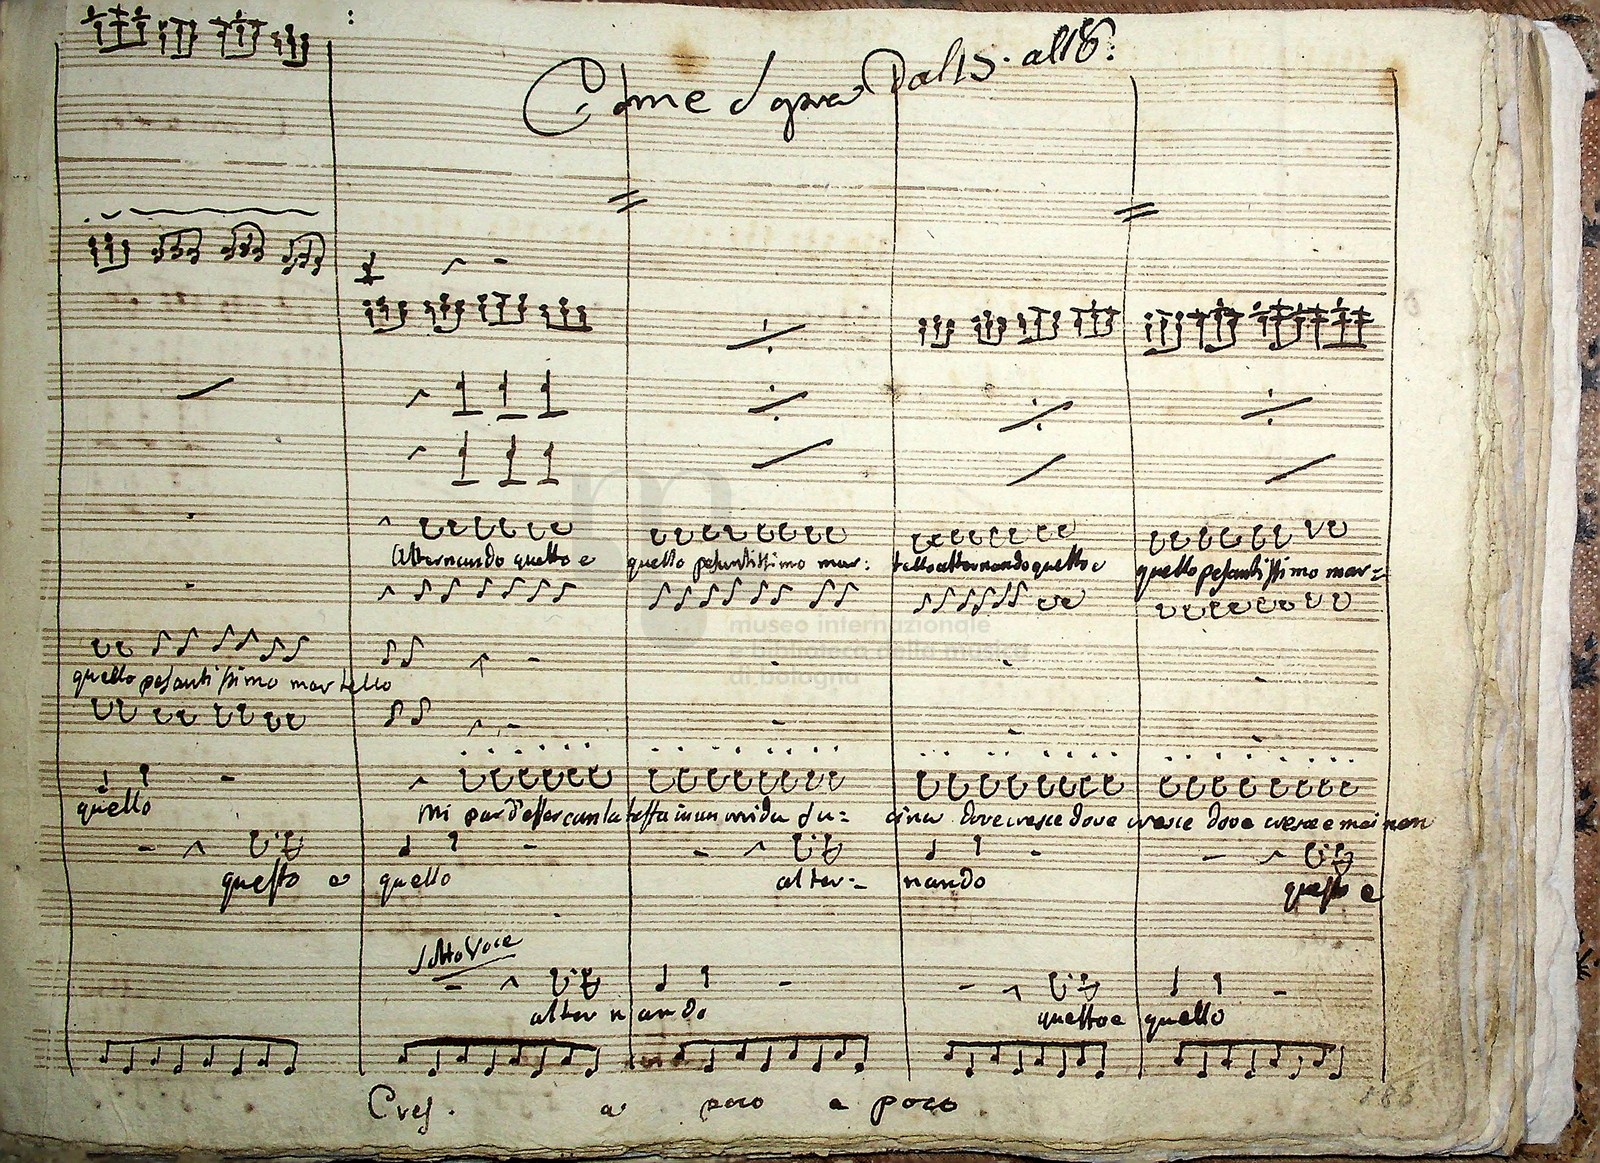 Come sopra Dal 15. al 18:
Alternando questo e quello pesantissimo mar: tello alternando questo e quello pesantissimo mar:
museo internazionale
e biblioteca della musica
di bologna
quello pesantissimo martello
quello Mi par d'esser con la testa in un orrida fu: cina dove cresce dove cresce dove cresce e mai non
questo e quello alter: nando questo e
Sotto Voce
alter nando questo e quello
Cres. a poco a poco
186